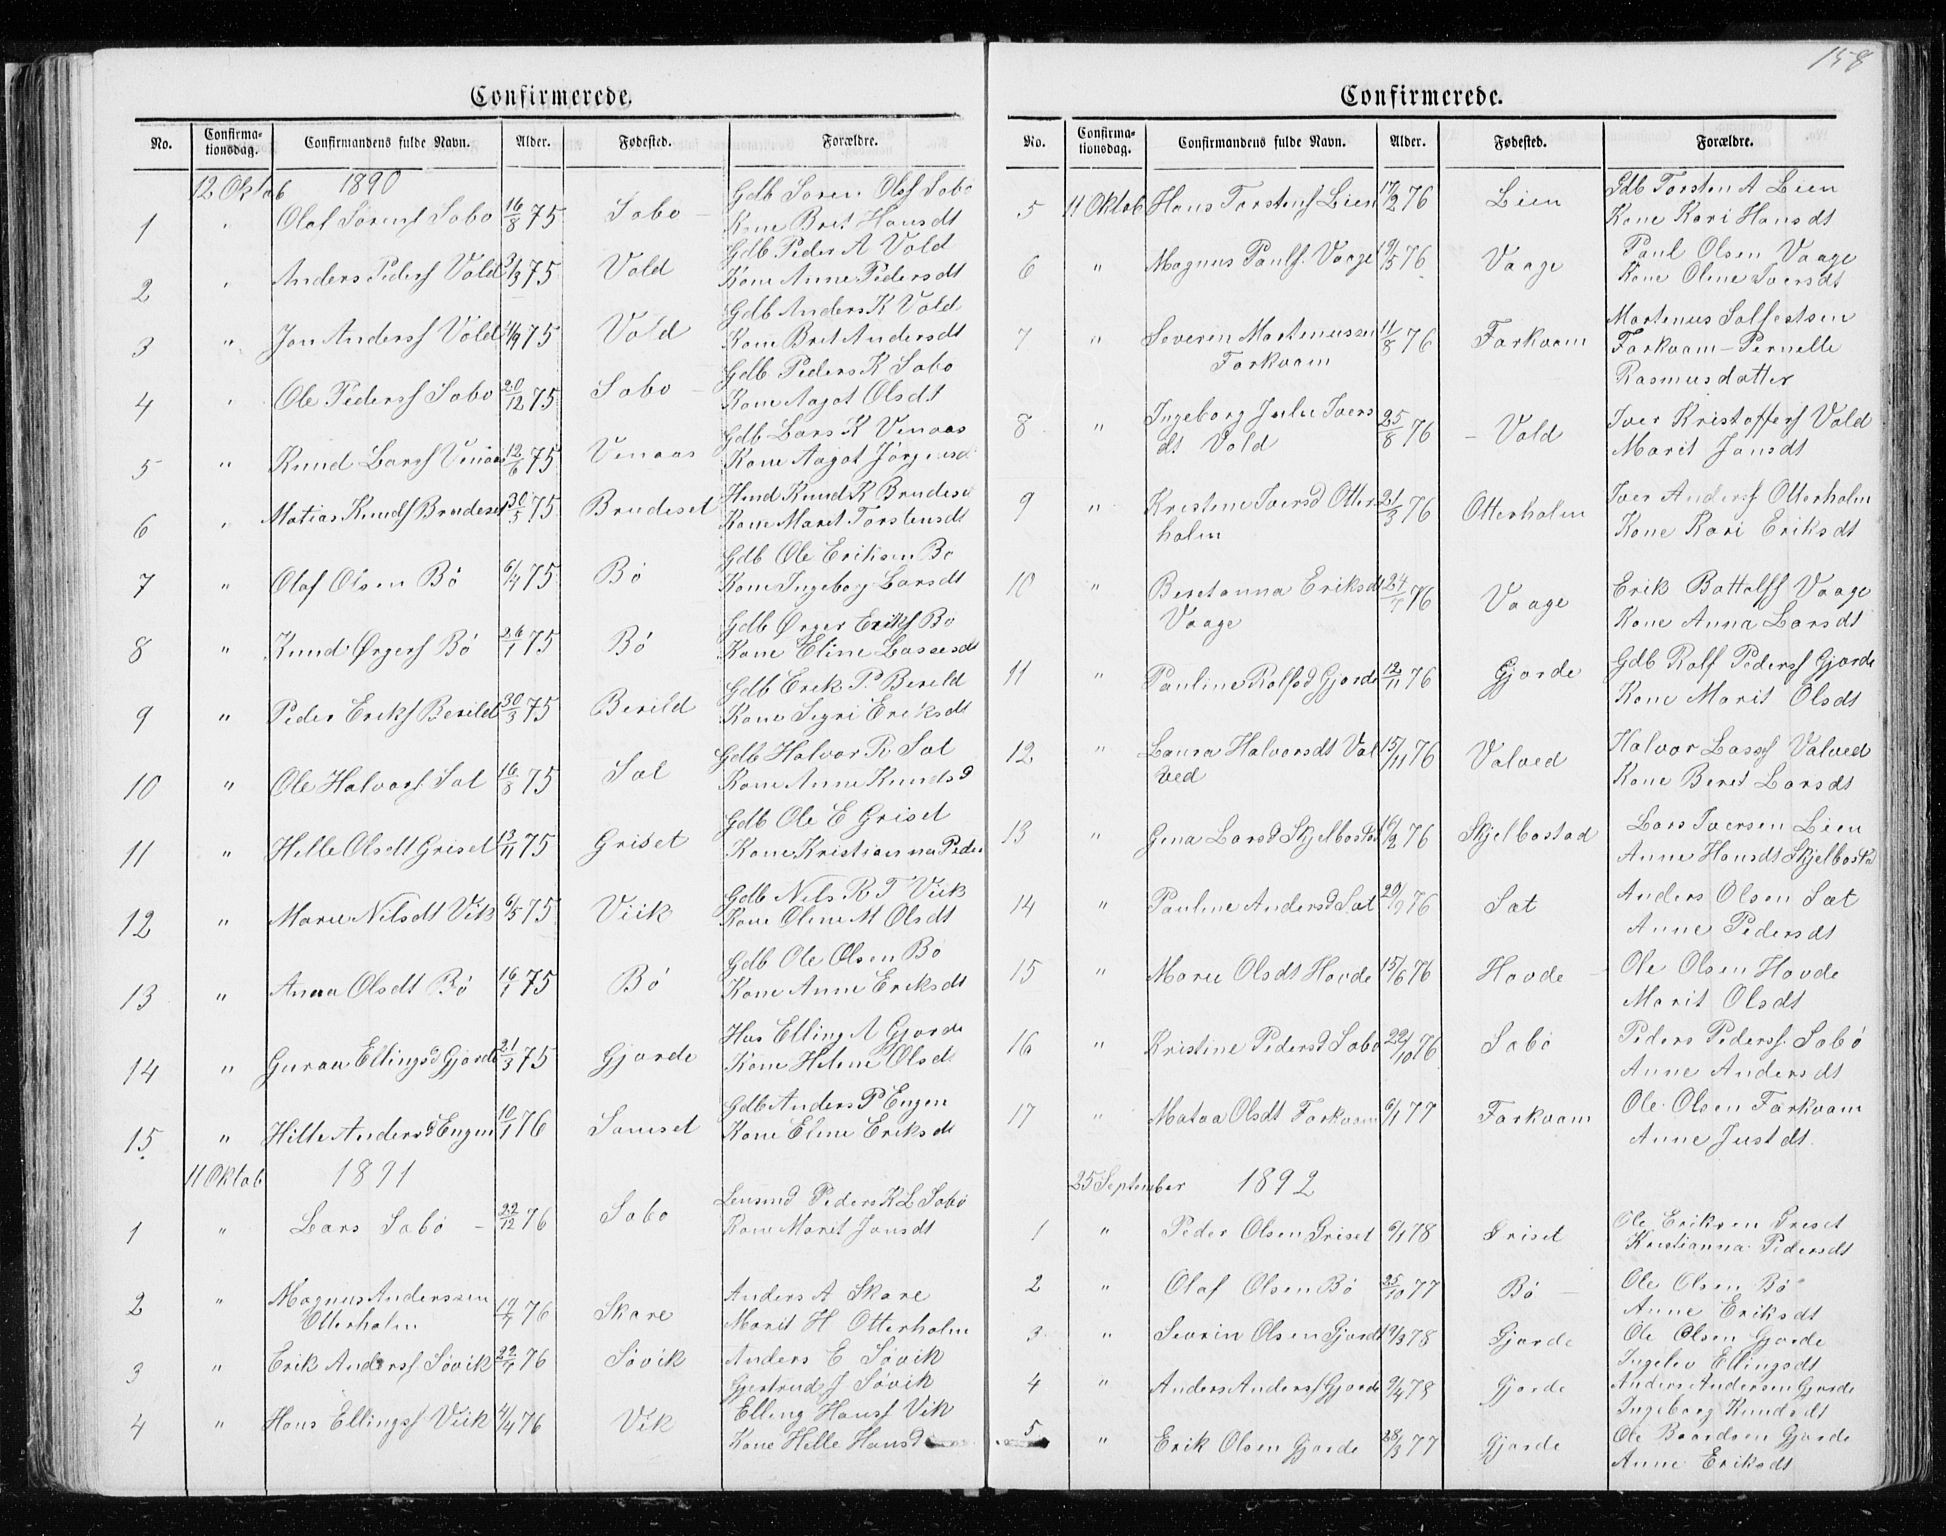 158
Confirmerede.
No. Confirmationsdag. Confirmandens fulde Navn. Alder. Fødested. Forældre.
12 Oktob 1890
1 " Olaf Sørens Sabo 16/8 75 Sabo Gdb Soren Ols Sabo
Kone Bret Hansdt
2 " Anders Peders Vold 75 Vold Gdb Peder A Vold
Kone Anne Pedersdt
3 " Jon Anders Vold 75 Vold Gdb Anders K Vold
Kone Bret Andersdt
4 " Ole Peders Sabo 20/12 75 Sabo Gdb Peders K Sabo
Kone Aagot Olsdt
5 " Knud Lars Venaas 12/6 75 Venaas Gdb Lars K Venaas
Kone Aagot Jørgensd
6 " Matias Knuds Brudeset 30/5 75 Brudeset Hmd Knud K Brudese
Kone Maret Torstensdt
7 " Olaf Olsen Bö 6/4 75 Bö Gdb Ole Eriksen Bo
Kone Ingeborg Larsdt
8 " Knud Ørgers Bö 26/1 75 Bö Gdb Ørger Eriks Bo
Kone Eline Lassesdt
9 " Peder Eriks Berild 30/3 75 Berild Gdb Erik P. Berild
Kone Segri Eriksdt
10 " Ole Halvors. Sæt 16/8 75 Sæt Gdb Halvor R Sæt
Kone Anne Knudsd
11 " Hille Olsdt Griset 13/11 75 Griset Gdb Ole E Griset
Kone Kristianna Peder
12 " Marie Nilsdt Vik 6/5 75 Viik Gdb Nils R T Viik
Kone Oline M Olsdt
13 " Anna Olsdt Bö 16/1 75 Bö Gdb Ole Olsen Bo
Kone Anne Eriksdt
14 " Guran Ellingsd Gjorde 21/3 75 Gjorde Hus Elling A Gjorde
Kone Helene Olsd
15 " Hille Andersd Engen 10/1 76 Gdb Anders P Engen
Kone Eline Eriksdt
11 Oktob 1891
1 " Lars Sabö 22/12 76 Sabo Lensmd Peder K L Sabö
Kone Marit Jonsdt
2 " Magnus Anderssen
Otterholm 76 Skare Anders A Skare
Marit H Otterholm
3 " Erik Anders Søvik 76 Søvik Anders E Søvik
Gjertrud J Søvik
4 " Hans Ellings Viik 4/4 76 Vik Elling Hans Vik
Kone Hille Hansd
Confirmerede.
No. Confirmationsdag. Confirmandens fulde Navn. Alder. Fødested. Forældre.
5 11 Oktob Hans Torstens Lien 17/2 76 Lien Gdb Torsten A Lien
Kone Kari Hansdt
6 " Magnus Pauls. Vaage 19/5 76 Vaage Paul Olsen Vaage
Kone Oline Iversdt
7 " Severin Martenussen
Farkvam 11/8 76 Farkvam Martenus Solfestsen
Farkvam - Pernille
Rasmusdatter
8 " Ingeborg Julie Ivers
dt Vold 25/8 76 Vold Iver Kristoffers Vold
Marit Jonsdt
9 " Kristine Iversd Otter
holm 21/3 76 Otterholm Iver Anders Otterholm
Kone Kari Eriksdt
10 " Beretanna Eriksdt
Vaage 76 Vaage Erik Bottolfs Vaage
Kone Anna Larsdt
11 " Pauline Rolfsd Gjorde 12/11 76 Gjorde Gdb Rolf Peders Gjorde
Kone Marit Olsdt
12 " Laura Halvorsdt Val
ved 15/11 76 Valved Halvor Lass Valved
Kone Beret Larsdt
13 " Gina Larsd Skjelbostad 76 Skjelbostad Lars Iversen Lien
Anne Hansdt Skjelbostd
14 " Pauline Andersd Sæt 20/9 76 Sæt Anders Olsen Sæt
Anne Pedersdt
15 " Marie Olsdt Hovde 15/6 76 Hovde Ole Olsen Hovde
Marit Olsdt
16 " Kristine Pedersd Sabo 22/10 76 Sabö Peders Peders. Sabö
Anne Andersdt
17 " Mataa Olsdt Farkvam 6/1 77 Farkvam Ole Olsen Farkvam
Anne Justdt.
25 September 1892
1 " Peder Olsen Griset 6/1 78 Griset Ole Eriksen Griset
Kristianna Pedersdt
2 " Olaf Olsen Bö 25/10 77 Bö Ole Olsen Bö
Anne Eriksdt
3 " Sevrin Olsen Gjorde 19/3 78 Gjorde Ole Olsen Gjorde
Ingelev Ellingsdt
4 " Anders Anders Gjorde 9/4 78 Gjorde Anders Andersen Gjorde
Ingeborg Knudsdt
5 " Erik Olsen Gjorde 28/3 77 Gjorde Ole Baardsen Gjorde
Anne Eriksdt